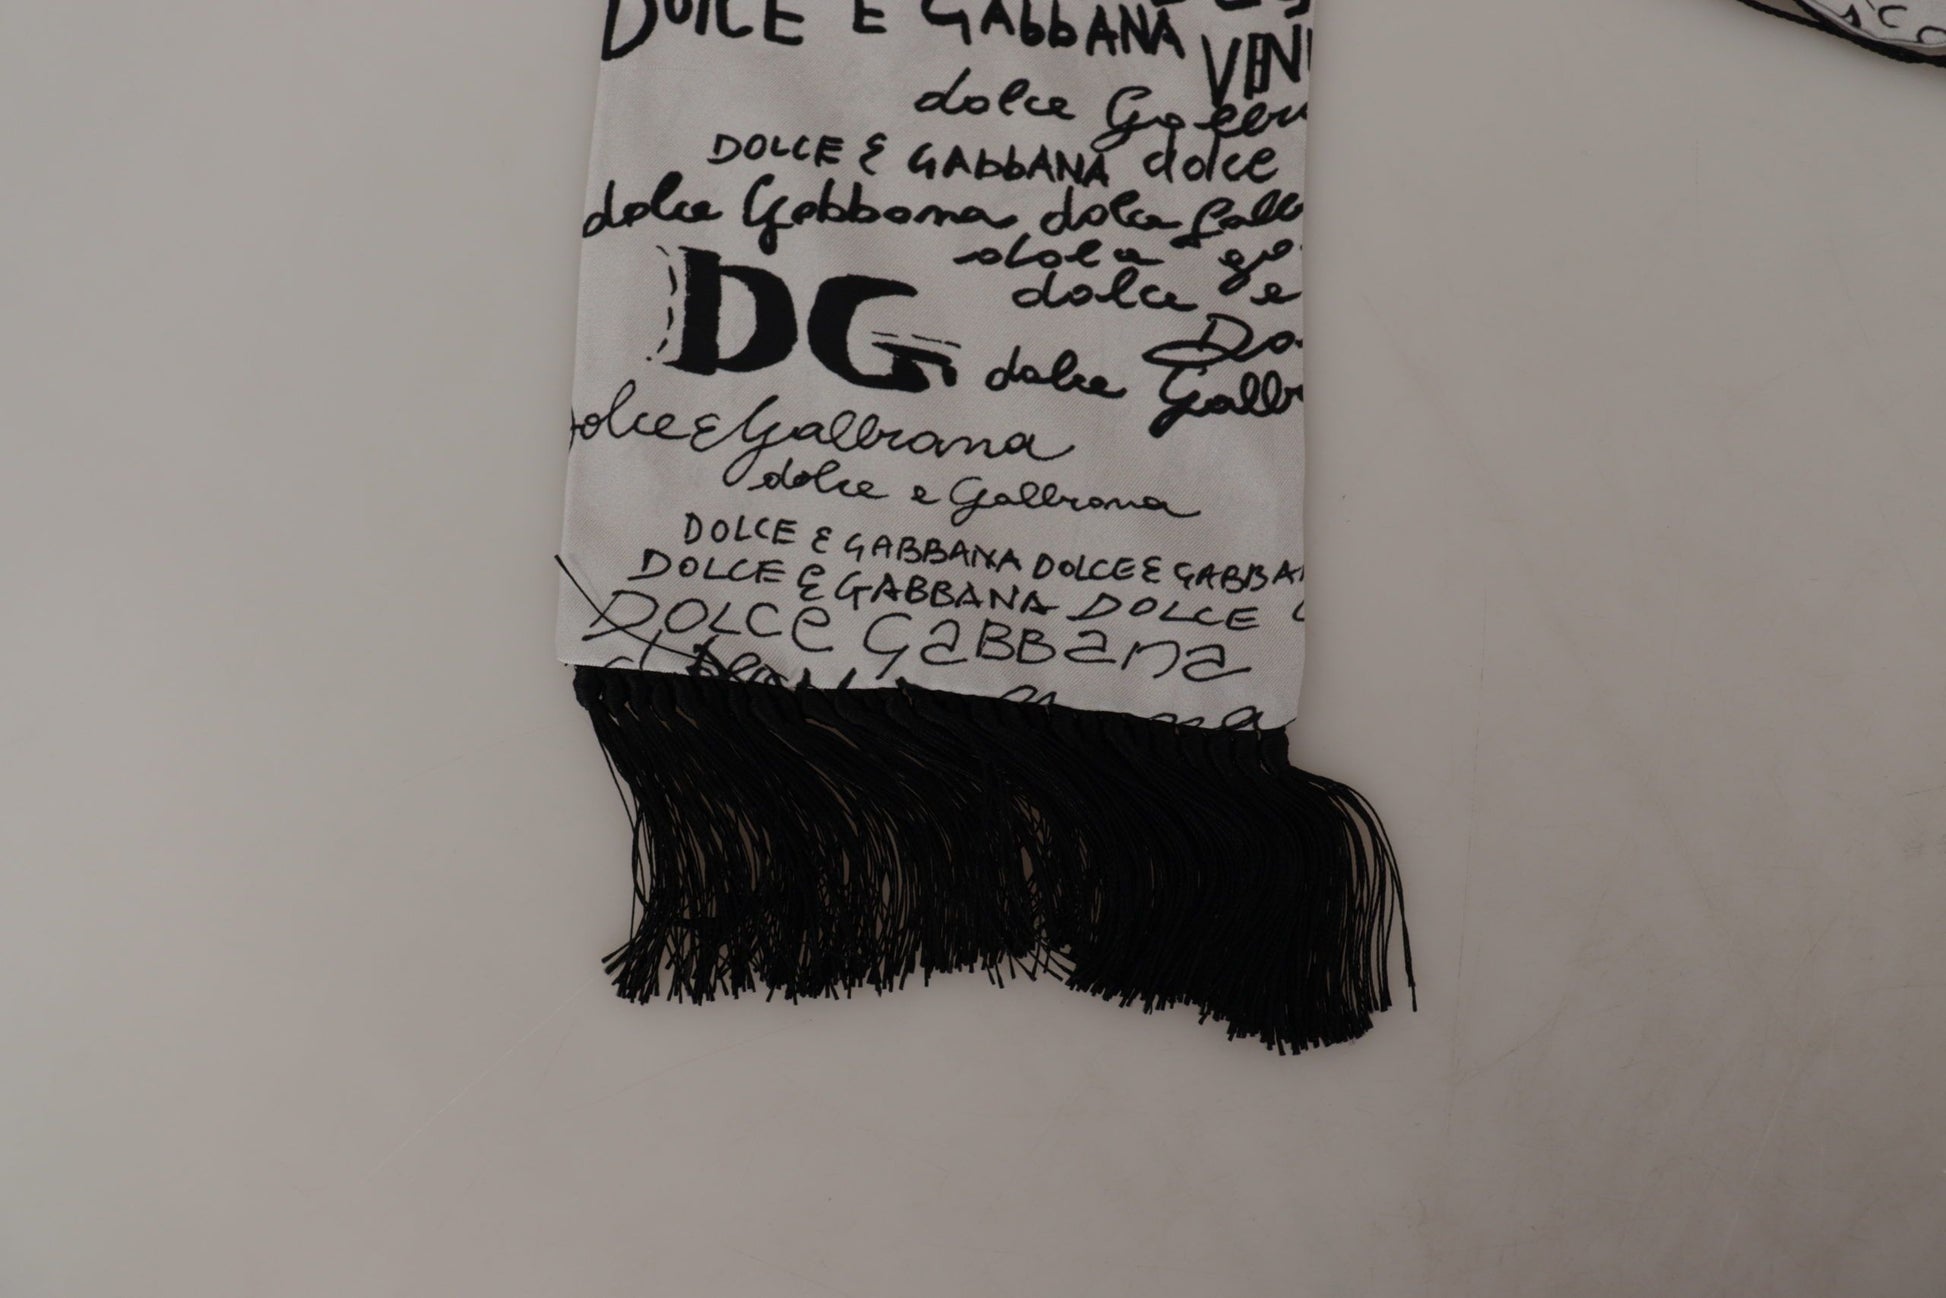 DOLCE E GAbbANA
VIN
dolce Gabb
DOLCE & GAbbANA dolce
dolce Gabbana dolce Gabb
dolce ga
dolce e
DG
Do
dolce Gabb
olce & Gabbana
dolce e Gabbana
DOLCE & GABBANA DOLCE & GABBA
DOLCE & GABBANA DOLCE
DOLCe GaBBana